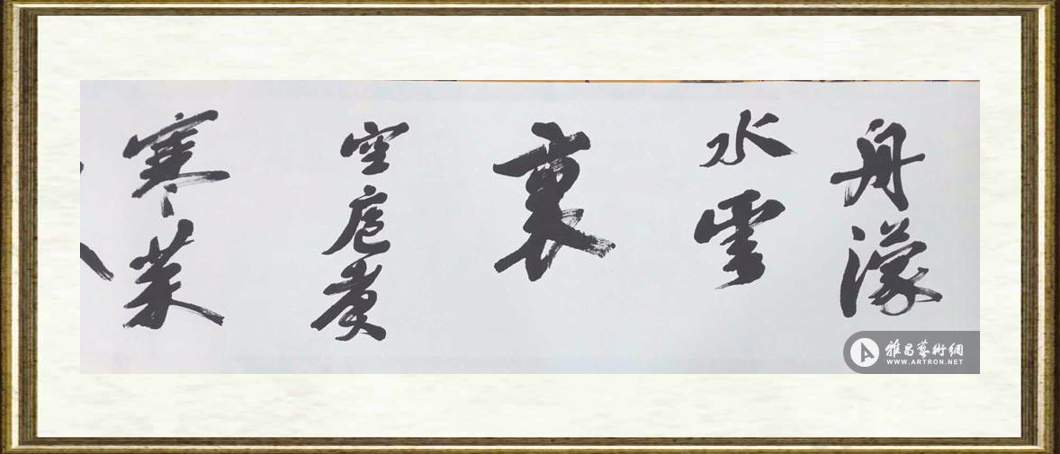 舟濛
水雲
裏
空庖煮
寒菜
雅昌藝術網
WWW.ARTRON.NET